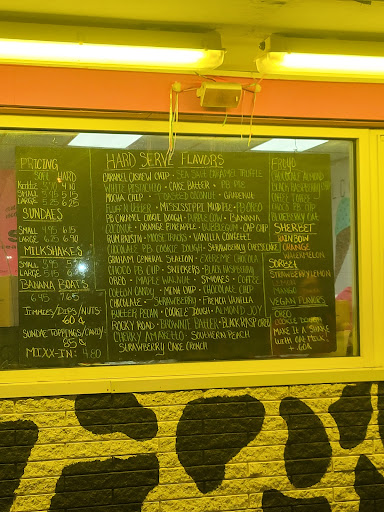 PRICING
SOFT HARD
SMALL
LARGE 5.25 6.25
SUNDAES
SMALL 4.95 6.15
LARGE 6.25 6.90
MILKSHAKES
SMALL
LARGE
BANANA BOATS
6.45 7.65
JIMMIES/DIPS/NUTS
60¢
SUNDAE TOPPINGS/CANDY
85¢
MIXX-IN: 4.80
HARD SERVE FLAVORS
CARAMEL CASHEW CHIP · SEA SALT CARAMEL TRUFFLE
WHITE PISTACHIO · CAKE BATTER · PB PIE
MOCHA CHIP · TOASTED COCONUT · GRAPENUT
· MISSISSIPPI MUDPIE · PB OREO
PB CARAMEL COOKIE DOUGH · PURPLE COW · BANANA
COCONUT · ORANGE PINEAPPLE · BUBBLEGUM · CAP CHIP
RUM RAISIN · MOOSE TRACKS · VANILLA
CHOCOLATE PB COOKIE DOUGH · STRAWBERRY CHEESECAKE
GRAHAM CENTRAL STATION · EXTREME CHOCOLATE
CHOCO PB CUP · SNICKERS · BLACK RASPBERRY
OREO · MAPLE WALNUT · SMORES · COFFEE
COTTON CANDY · MINT CHIP · CHOCOLATE CHIP
CHOCOLATE · STRAWBERRY · FRENCH VANILLA
BUTTER PECAN · COOKIE DOUGH · ALMOND JOY
ROCKY ROAD · BROWNIE BATTER · BLACK RASP OREO
CHERRY AMARETTO · SOUTHERN PEACH
STRAWBERRY CAKE CRUNCH
FROYO
CHOCOLATE ALMOND
BLACK RASPBERRY CHIP
SHERBET
RAINBOW
ORANGE
WATERMELON
SORBET
STRAWBERRY LEMON
LEMON
MANGO
VEGAN FLAVORS
OREO
COOKIE DOUGH
MAKE IT A SHAKE
WITH OAT MILK!
+.60¢